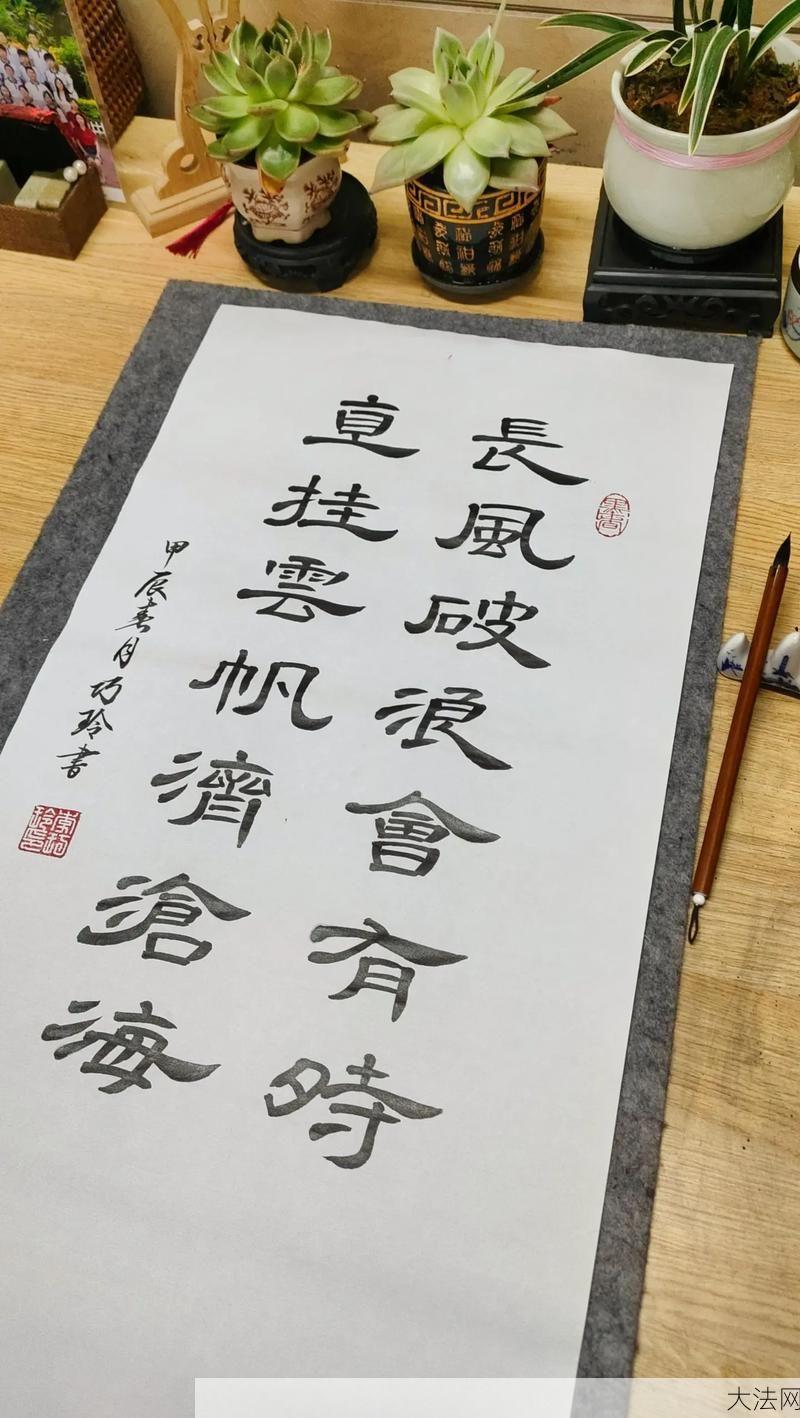 長風破浪會有時
直挂雲帆濟滄海
甲辰春月巧玲書
大法网